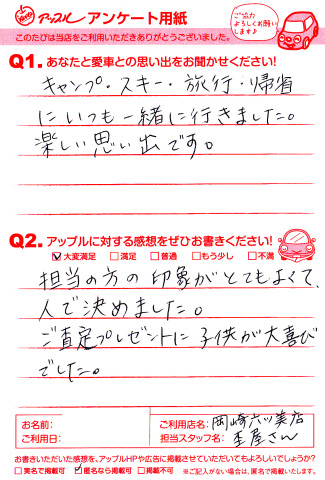 アップル アンケート用紙
ご協力
よろしくお願い
します♪
このたびは当店をご利用いただきありがとうございました。
Q1. あなたと愛車との思い出をお聞かせください!
キャンプ・スキー・旅行・帰省
にいつも一緒に行きました。
楽しい思い出です。
Q2. アップルに対する感想をぜひお書きください!
☑大変満足 □満足 □普通 □もう少し □不満
担当の方の印象がとてもよくて、
人で決めました。
ご査定プレゼントに子供が大喜び
でした。
お名前:
ご利用日:
ご利用店名: 岡崎六ツ美店
担当スタッフ名: 屋さん
お書きいただいた感想を、アップルHPや広告に掲載させていただいてもよろしいでしょうか?
□実名で掲載可 ☑匿名なら掲載可 □掲載不可 ※ご記入がない場合は、匿名で掲載いたします。